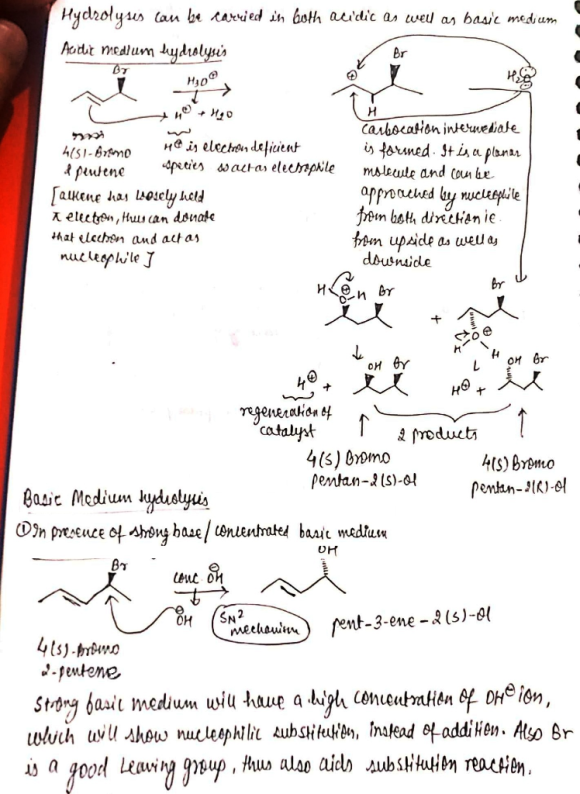 Hydrolysis can be carried in both acidic as well as basic medium
Acidic medium hydrolysis
Br
H3O⊕
H⊕ + H2O
4(S)-Bromo
2 pentene
H⊕ is electron deficient
species so act as electrophile
[alkene has loosely held
π electron, thus can donate
that electron and act as
nucleophile]
⊕
Br
H
H2O
Carbocation intermediate
is formed. It is a planar
molecule and can be
approached by nucleophile
from both direction ie.
from upside as well as
downside
H ⊕ O H Br
+
Br
H O ⊕ H
H⊕ +
OH Br
H⊕ +
OH Br
regeneration of
catalyst
2 products
4(S) Bromo
pentan-2(S)-ol
4(S) Bromo
pentan-2(R)-ol
Basic Medium hydrolysis
① In presence of strong base/concentrated basic medium
Br
conc. ⊖OH
⊖OH
SN2
mechanism
OH
pent-3-ene-2(S)-ol
4(S)-Bromo
2-pentene
Strong basic medium will have a high concentration of OH⊖ ion,
which will show nucleophilic substitution, instead of addition. Also Br
is a good leaving group, thus also aids substitution reaction.